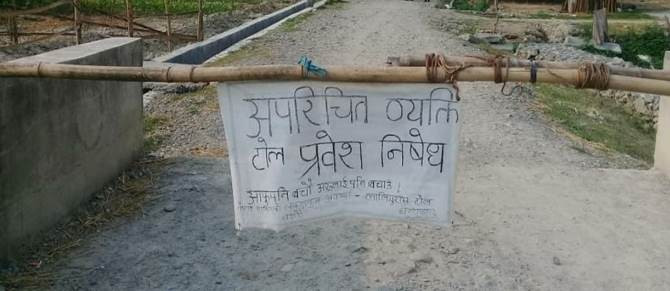 अपरिचित व्यक्ति
टोल प्रवेश निषेध
आफुपनि बचौं अरुलाई पनि बचाउँ !
टोल